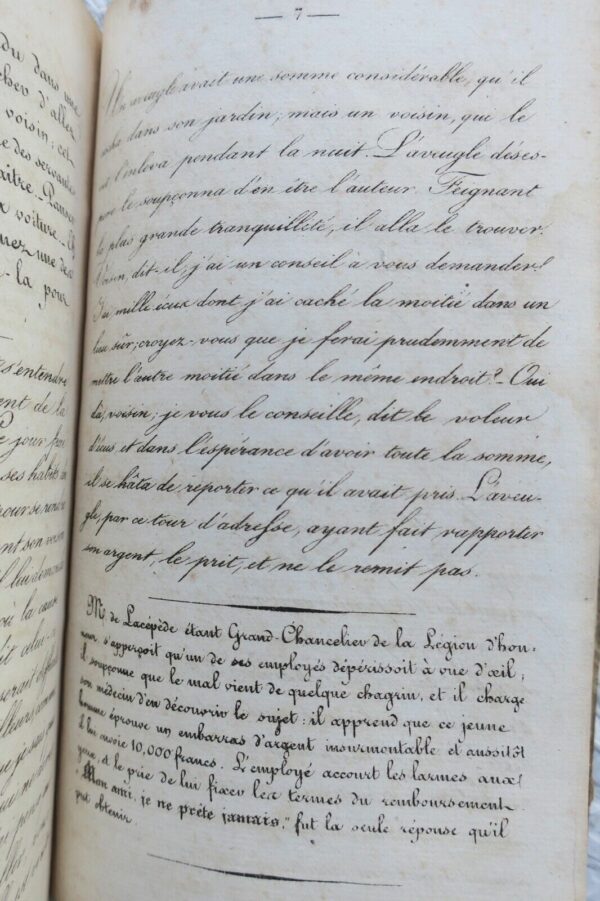 du dans une
cher d'aller
voisin; cet
e des servantes
aître.
voiture.
nez une de
la pour
s'entendre
ent de la
jour
ses habits
pour se rendre
nt son voisin
la cause
serait
— 7 —
Un aveugle avait une somme considérable, qu'il
cacha dans son jardin; mais un voisin, qui le
vit l'enleva pendant la nuit. L'aveugle déses-
péré le soupçonna d'en être l'auteur. Feignant
la plus grande tranquilleté, il alla le trouver.
Voisin, dit-il; j'ai un conseil à vous demander!
J'ai mille écus dont j'ai caché la moitié dans un
lieu sûr; croyez-vous que je ferai prudemment de
mettre l'autre moitié dans le même endroit? – Oui
da, voisin; je vous le conseille, dit le voleur
d'écus et dans l'espérance d'avoir toute la somme,
il se hâta de reporter ce qu'il avait pris. L'aveu-
gle, par ce tour d'adresse, ayant fait rapporter
son argent, le prit, et ne le remit pas.
Mr de Lacépède étant Grand-Chancelier de la Légion d'hon-
neur, s'apperçoit qu'un de ses employés dépérissoit à vue d'œil;
il soupçonne que le mal vient de quelque chagrin, et il charge
son médecin d'en découvrir le sujet: il apprend que ce jeune
homme éprouve un embarras d'argent insurmontable et aussitôt
il lui envoie 10,000 francs. L'employé accourt les larmes aux
yeux, et le prie de lui fixer les termes du remboursement.
"Mon ami, je ne prête jamais," fut la seule réponse qu'il
put obtenir.